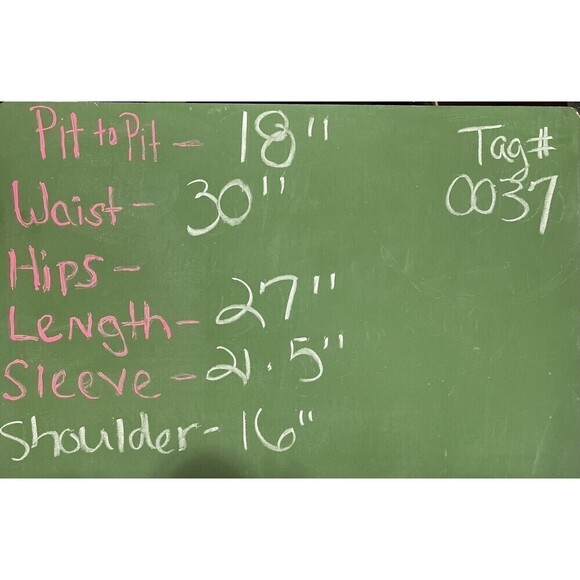 Pit to Pit - 18"
Waist - 30"
Hips -
Length - 27"
Sleeve - 21.5"
Shoulder - 16"
Tag#
0037